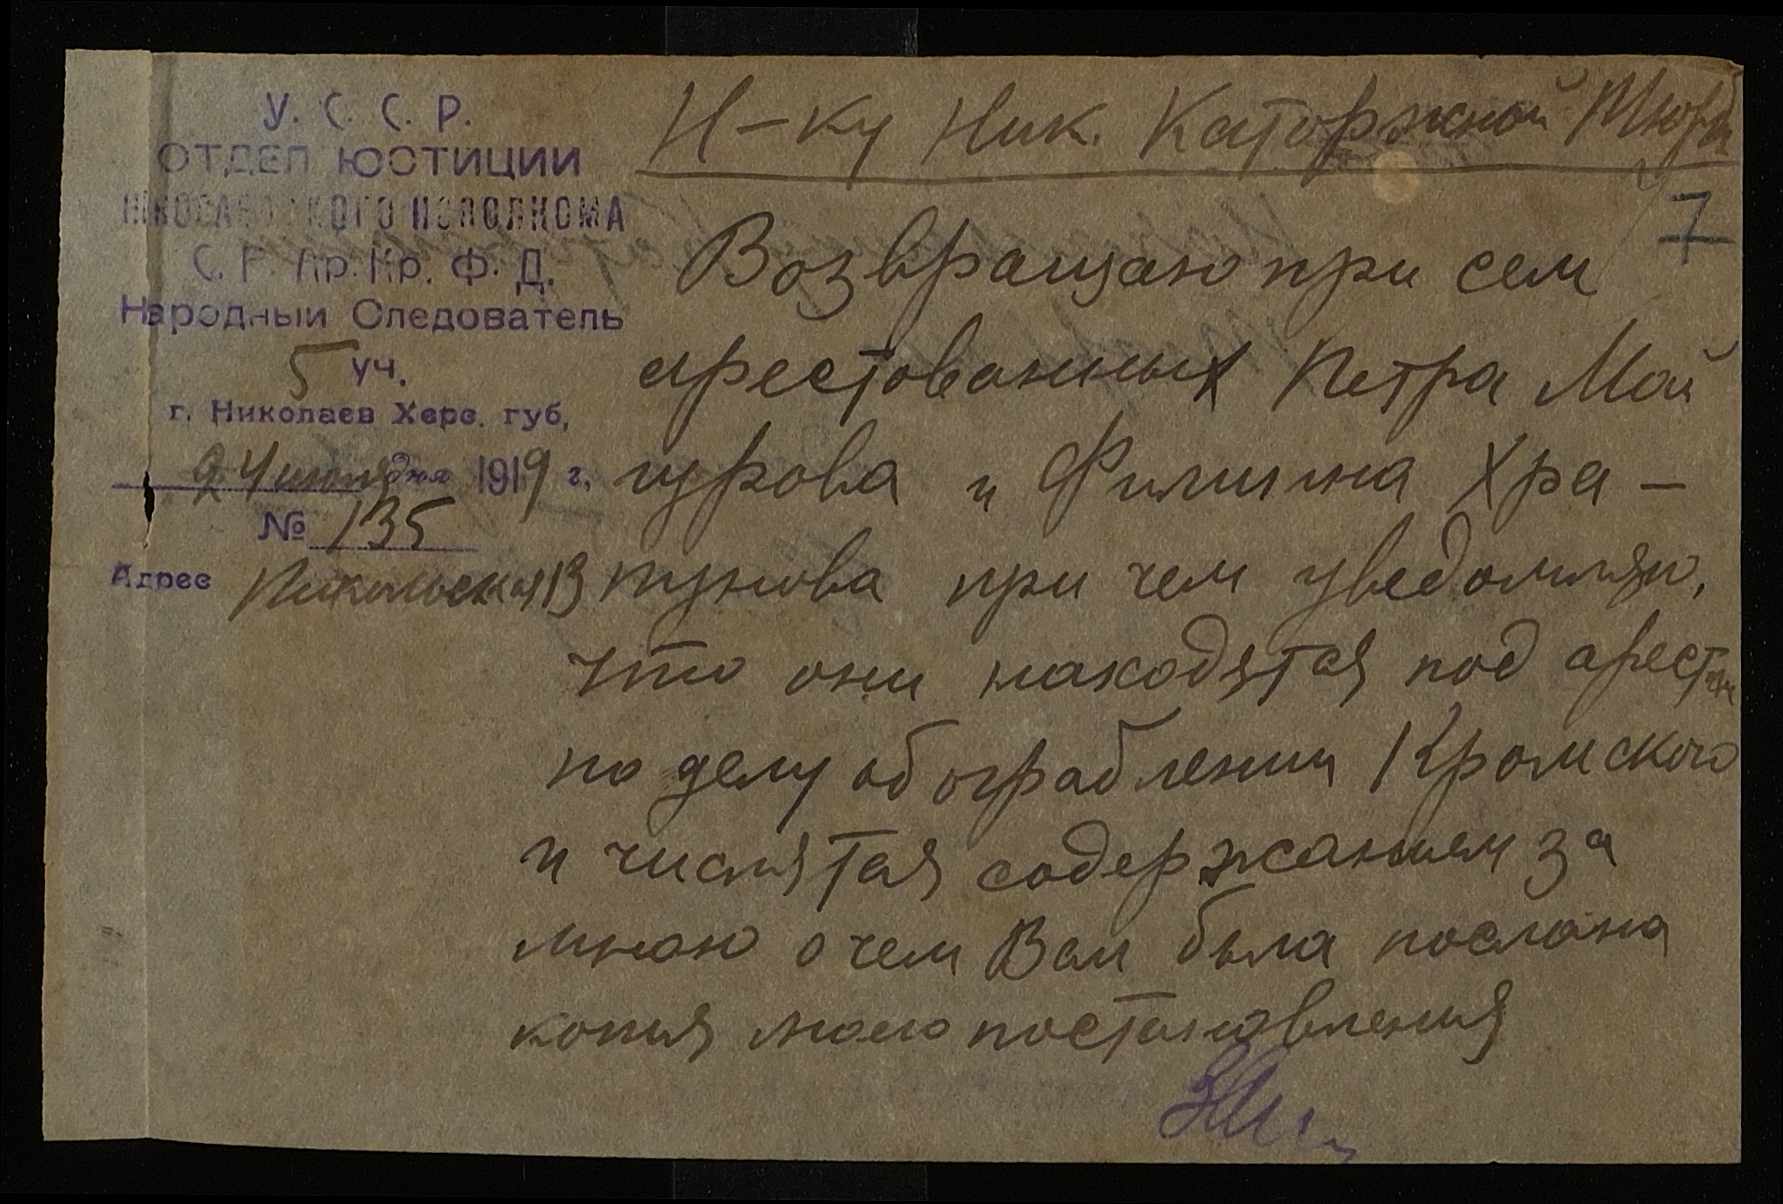 У. С. С. Р.
ОТДЕЛ ЮСТИЦИИ
НИКОЛАЕВСКОГО ИСПОЛКОМА
С. Р. Кр. Кр. Ф. Д.
Народный Следователь
5 уч.
г. Николаев Херс. губ,
24 июня дня 1919 г.
№ 135
Адрес Никольская 13
Н-ку Ник. Каторжной Тюрьм
7
Возвращаю при сем
арестованных Петра Май
гурова и Филиппа Хра-
тунова при чем уведомляю,
что они находятся под арестом
по делу об ограблении Кромского
и числятся содержанием за
мною о чем Вам была послана
копия моего постановления